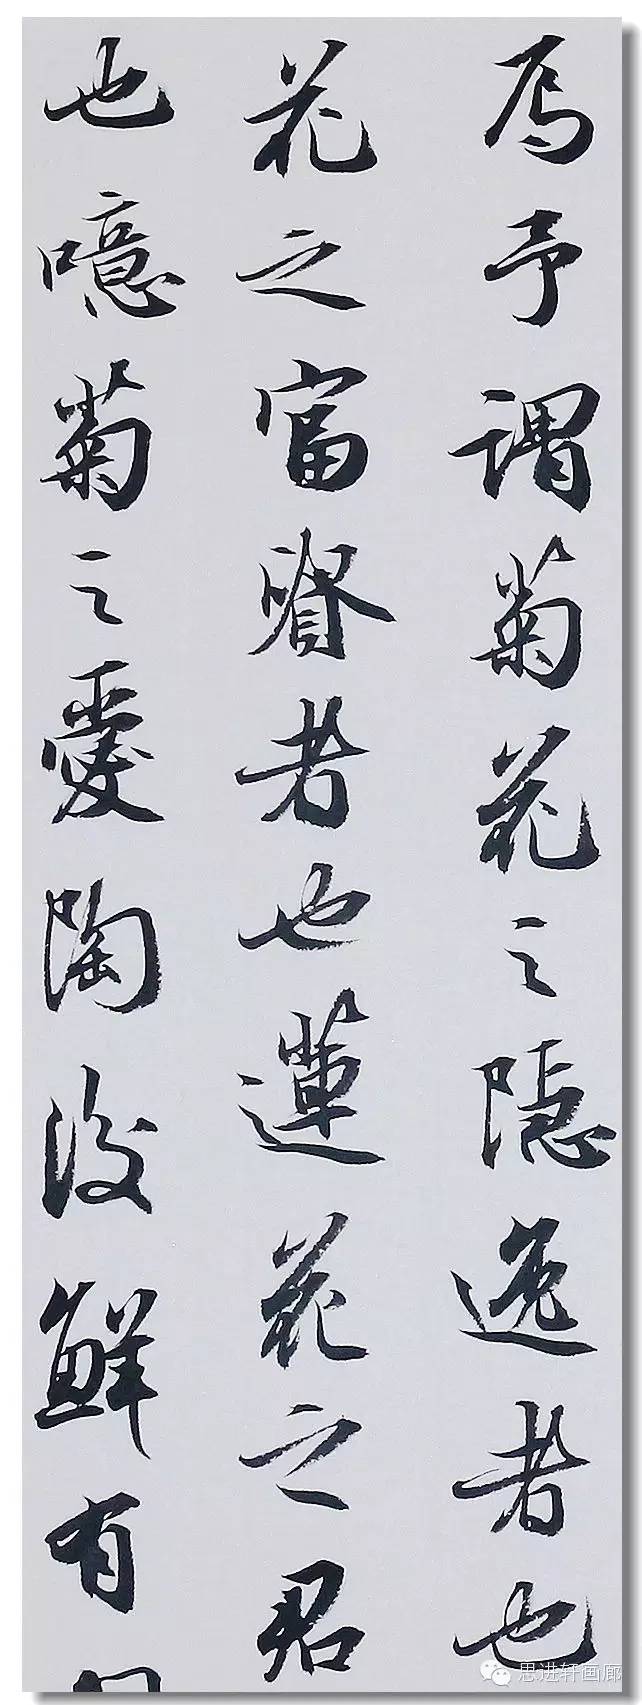 焉予謂菊花之隱逸者也
花之富賢者也蓮花之君
也噫菊之愛陶後鮮有
思进轩画廊